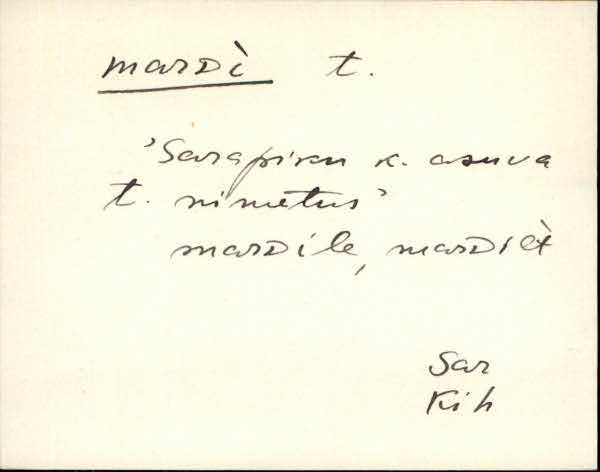 marDì t.
'Sarapiku k. asuva
t. nimetus'
marDile, marDilt
Sar
Kih